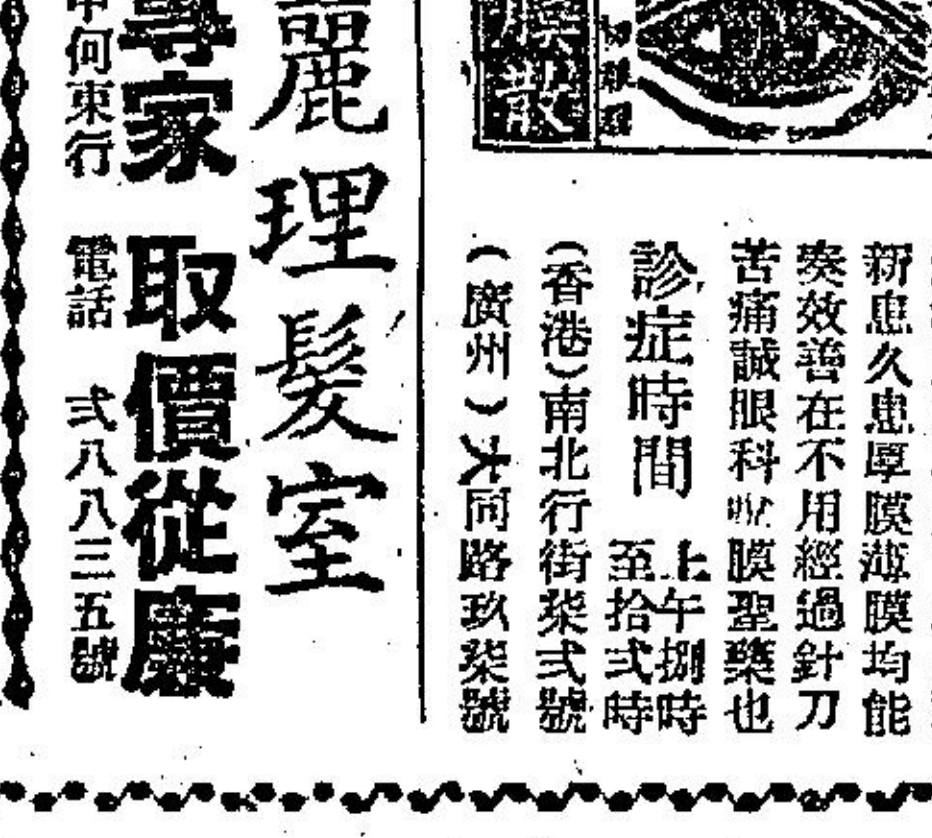 新患久患厚膜薄膜均能
奏效善在不用經過針刀
苦痛誠眼科 膜聖藥也
診症時間 上午捌時
至拾弍時
(香港)南北行街柒弍號
(廣州)大同路玖柒號
麗理髮室
專家 取價從廉
中何東行 電話 弍八八三五號